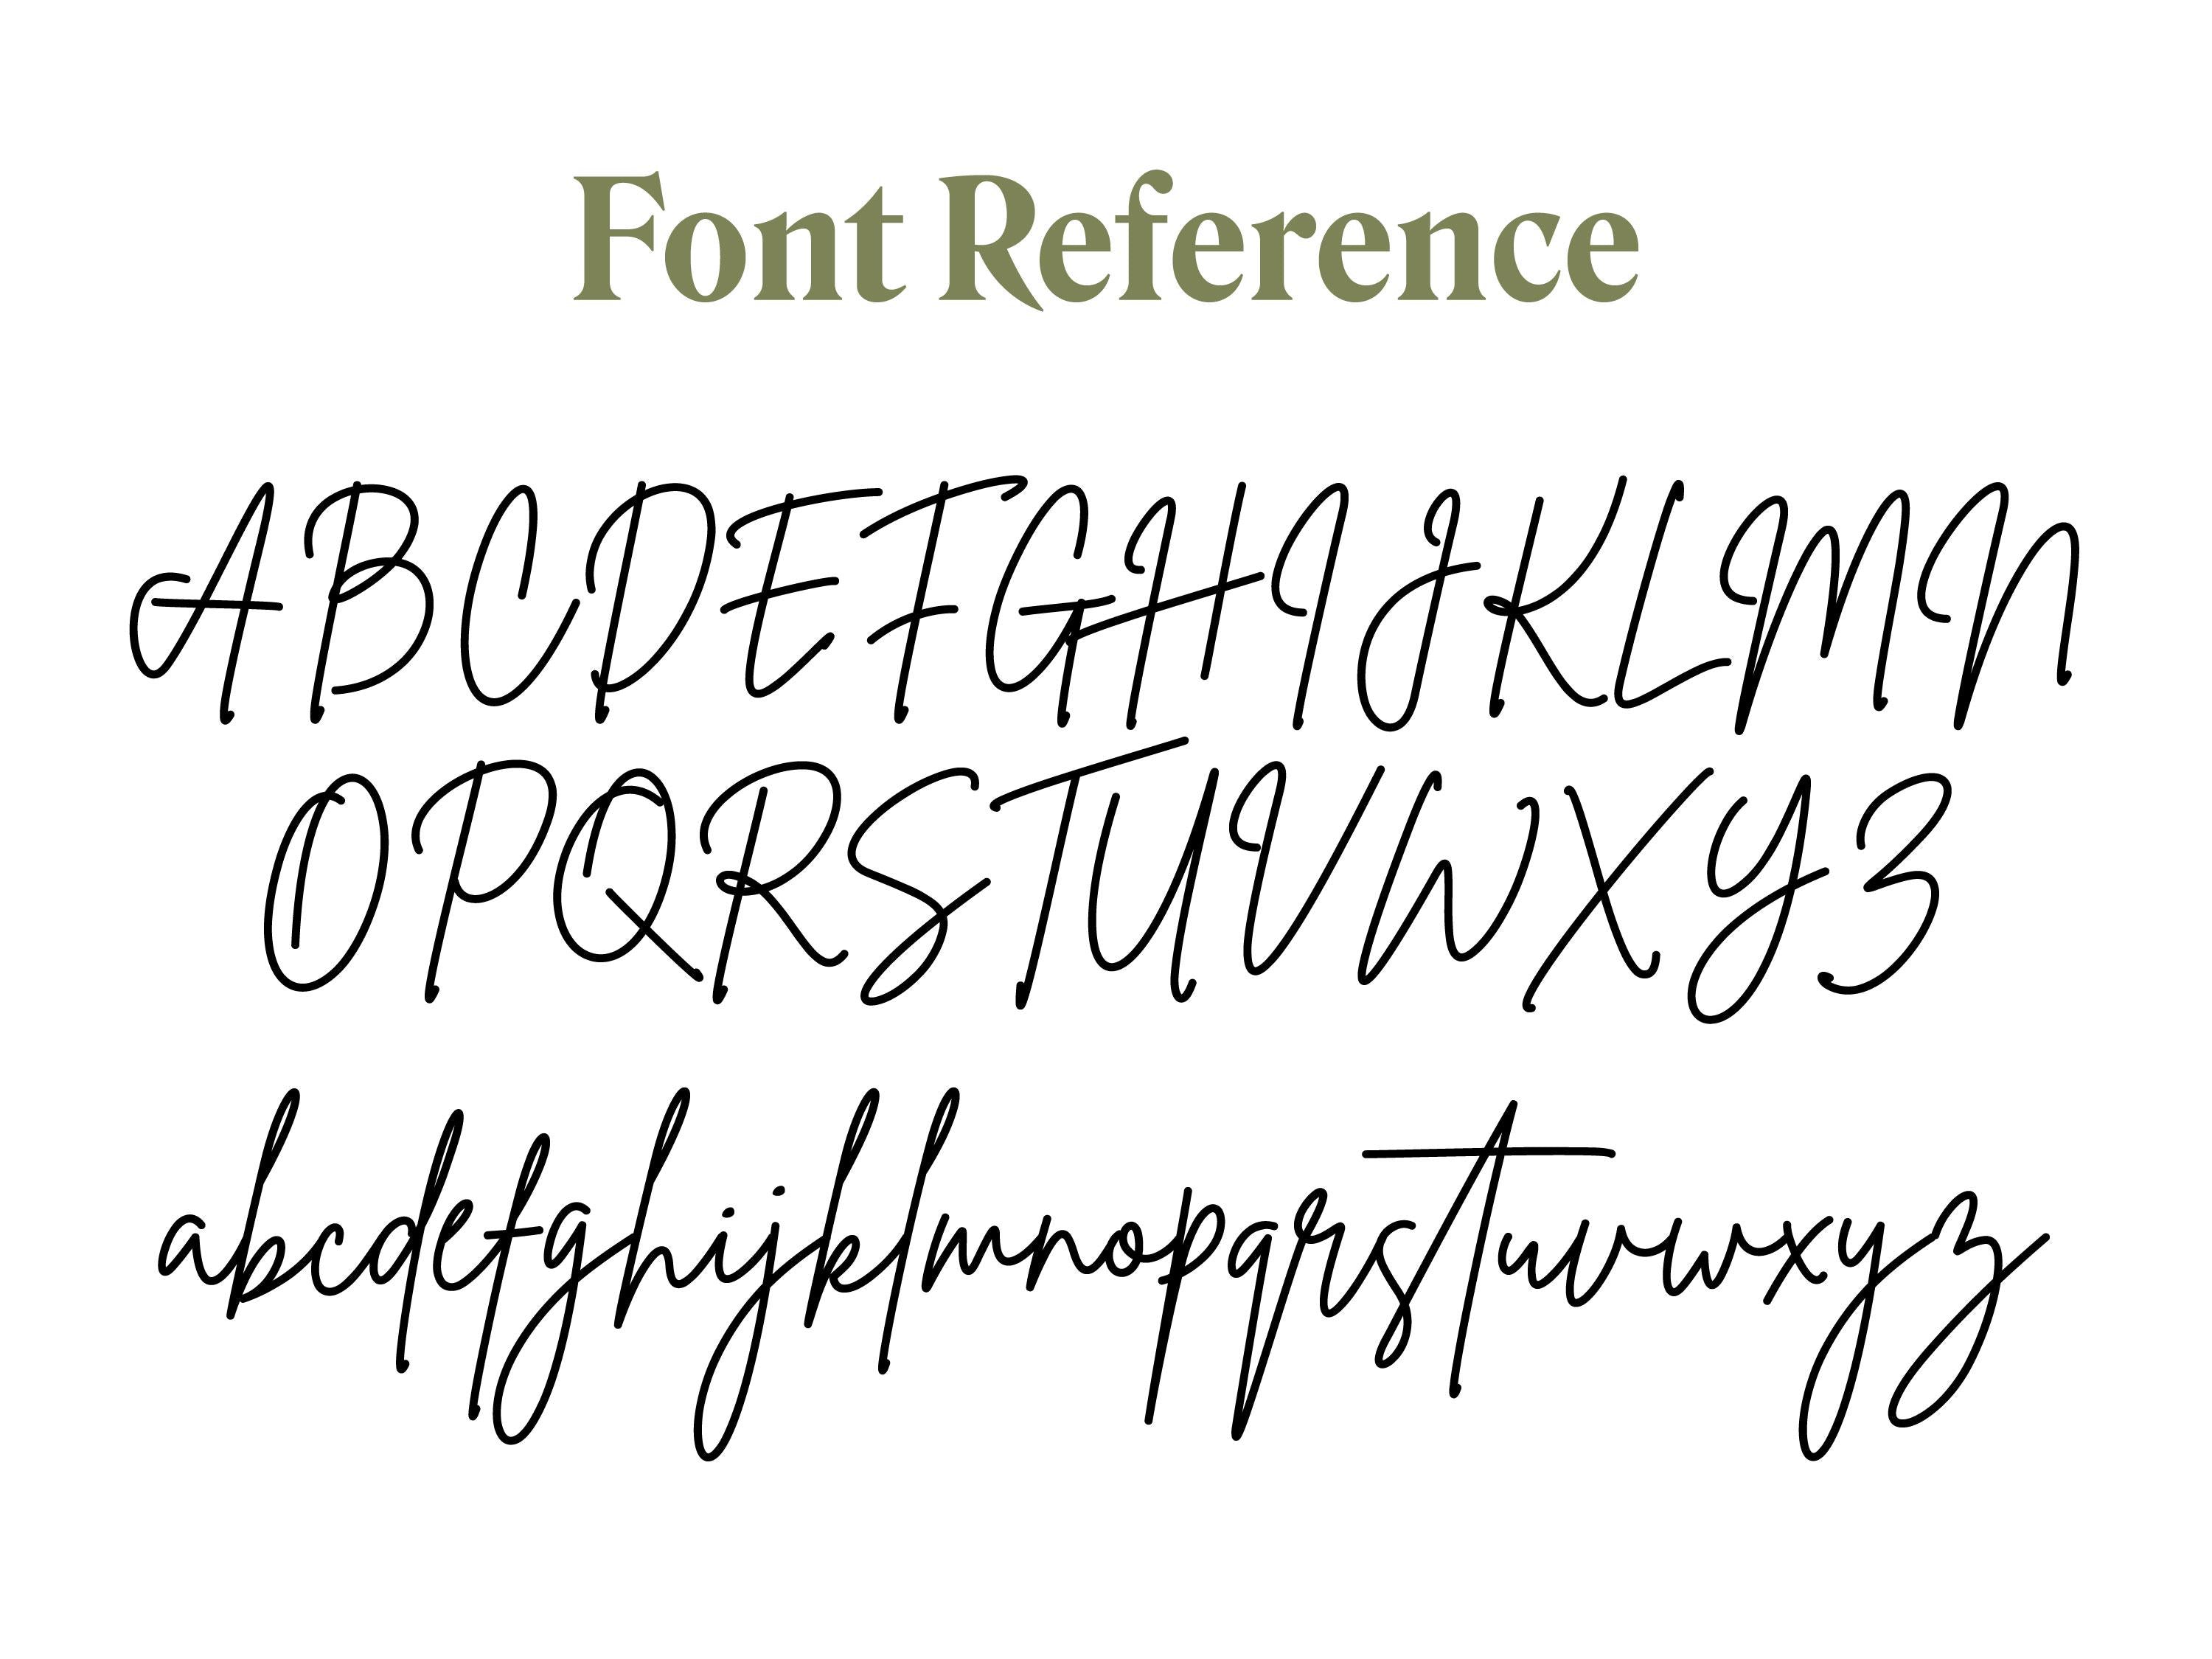 Font Reference
ABCDEFGHIJKLMN
OPQRSTUVWXYZ
abcdefghijklmnopqrstuvwxyz